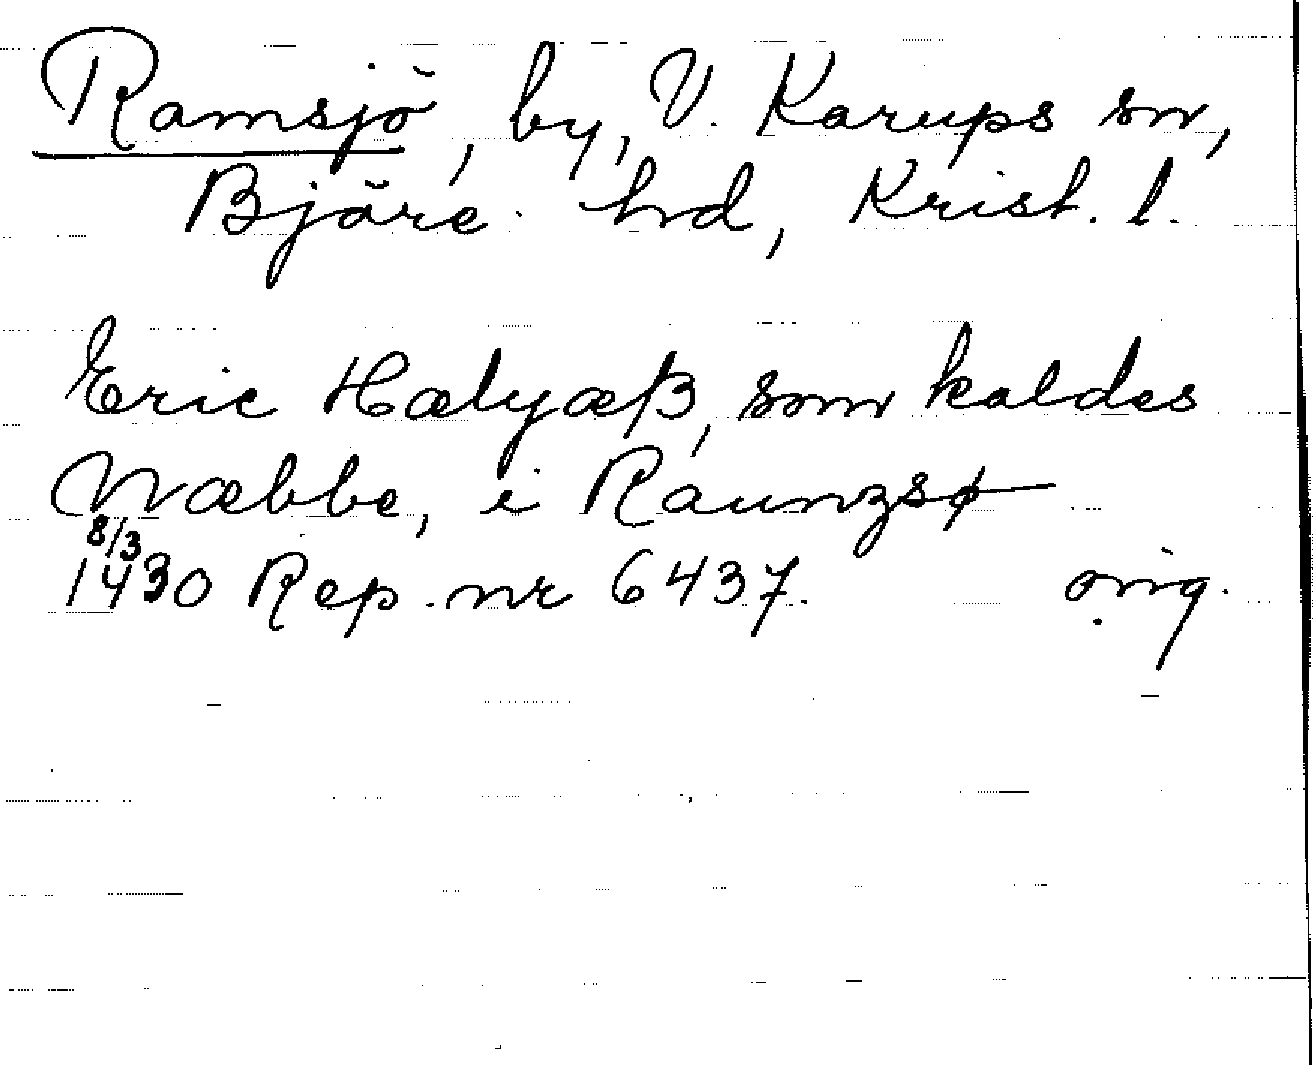 Ramsjö, by, V. Karups sn,
Bjäre hd, Krist. l.
Eric Hælyæß, som kaldes
Næbbe, i Raunzsø
8/3
1430 Rep. nr 6437. orig.